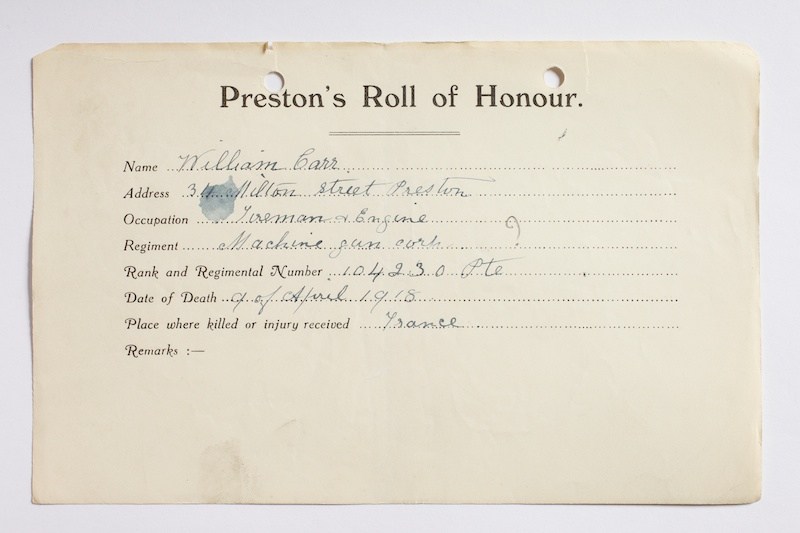 Preston's Roll of Honour.
Name William Carr
Address 34 Milton Street Preston
Occupation Fireman & Engine
Regiment Machine gun corps ?
Rank and Regimental Number 104230 Pte
Date of Death 9 of April 1918
Place where killed or injury received France
Remarks :—